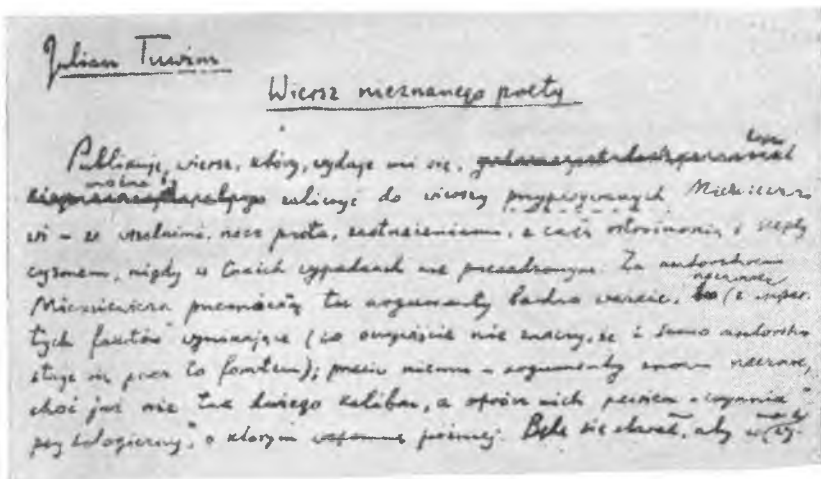 Julian Tuwim
Wiersz nieznanego poety
Publikuję wiersz, który, wydaje mi się,
można zaliczyć do wierszy przypisywanych Mickiewiczo
wi – ze wszelkimi, rzecz prosta, zastrzeżeniami, z całą ostrożnością i scepty
cyzmem, nigdy w takich wypadkach nie przesadzonym. Za autorstwem
Mickiewicza przemawiają tu argumenty bardzo rzeczowe,
tych faktów wynikające (co oczywiście nie znaczy, że i samo autorstwo
staje się przez to faktem); przeciw niemu – argumenty znowu rzeczowe,
choć już nie tak dużego kalibru, a oprócz nich pewien "czynnik
psychologiczny", o którym wspomnę później. Będę się starał, aby